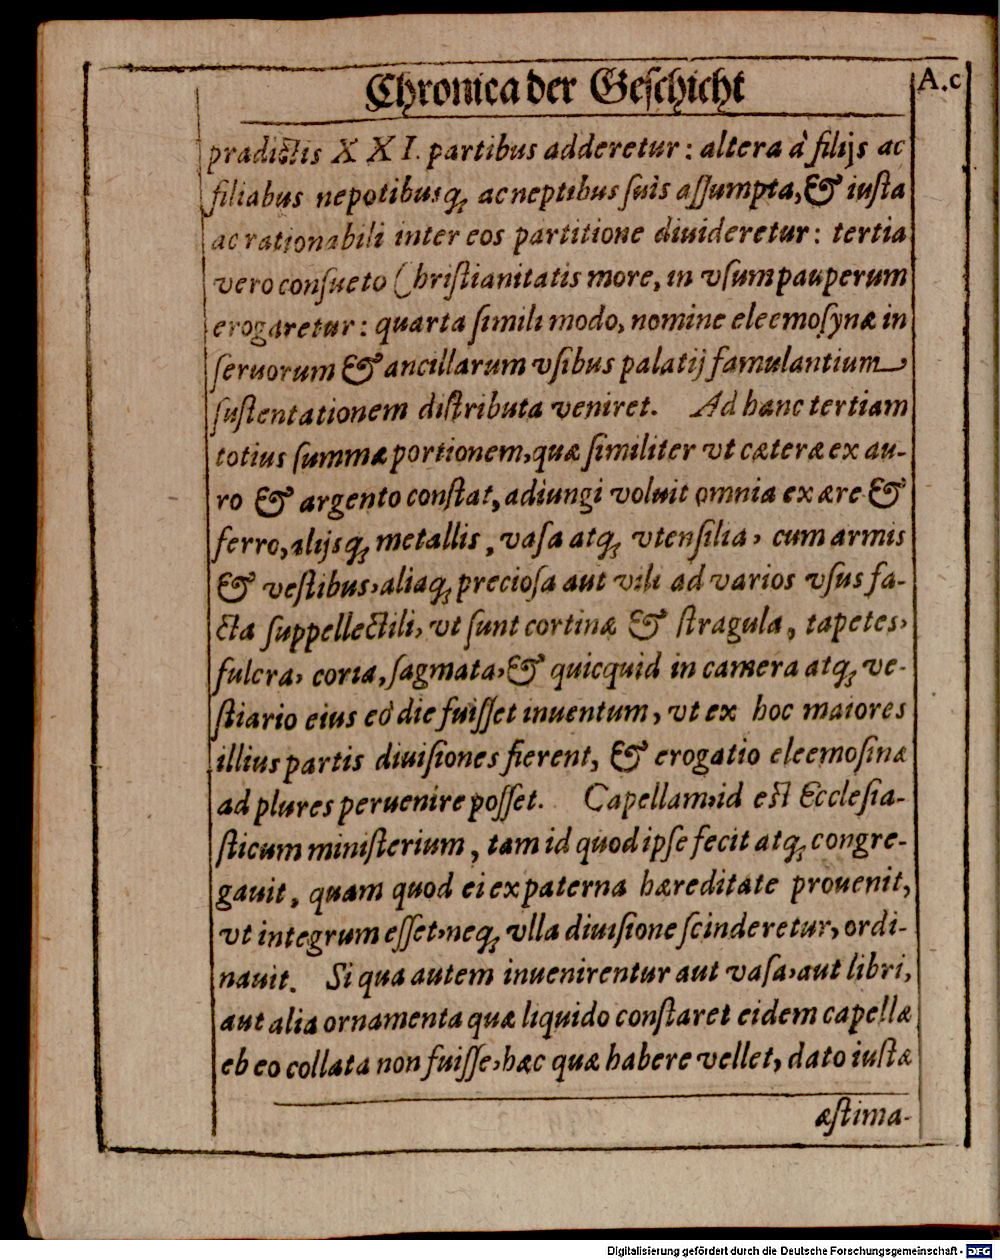 Chronica der Geschicht
A.c
prædictis XXI. partibus adderetur: altera à filijs ac
filiabus nepotibusq́; ac neptibus suis assumpta, & iusta
ac rationabili inter eos partitione diuideretur: tertia
vero consueto Christianitatis more, in vsum pauperum
erogaretur: quarta simili modo, nomine eleemosynæ in
seruorum & ancillarum vsibus palatij famulantium
sustentationem distributa veniret. Ad hanc tertiam
totius summæ portionem, quæ similiter vt cæteræ ex au-
ro & argento constat, adiungi voluit omnia ex ære &
ferro, alijsq́; metallis, vasa atq́; vtensilia, cum armis
& vestibus, aliaq́; preciosa aut vili ad varios vsus fa-
cta suppellectili, vt sunt cortinæ & stragula, tapetes,
fulcra, coria, sagmata, & quicquid in camera atq́; ve-
stiario eius eò die fuisset inuentum, vt ex hoc maiores
illius partis diuisiones fierent, & erogatio eleemosinæ
ad plures peruenire posset. Capellam, id est Ecclesia-
sticum ministerium, tam id quod ipse fecit atq́; congre-
gauit, quam quod ei ex paterna hæreditate prouenit,
vt integrum esset, neq́; vlla diuisione scinderetur, ordi-
nauit. Si qua autem inuenirentur aut vasa, aut libri,
aut alia ornamenta quæ liquido constaret eidem capellæ
eb eo collata non fuisse, hæc quæ habere vellet, dato iustæ
æstima-
Digitalisierung gefördert durch die Deutsche Forschungsgemeinschaft - DFG